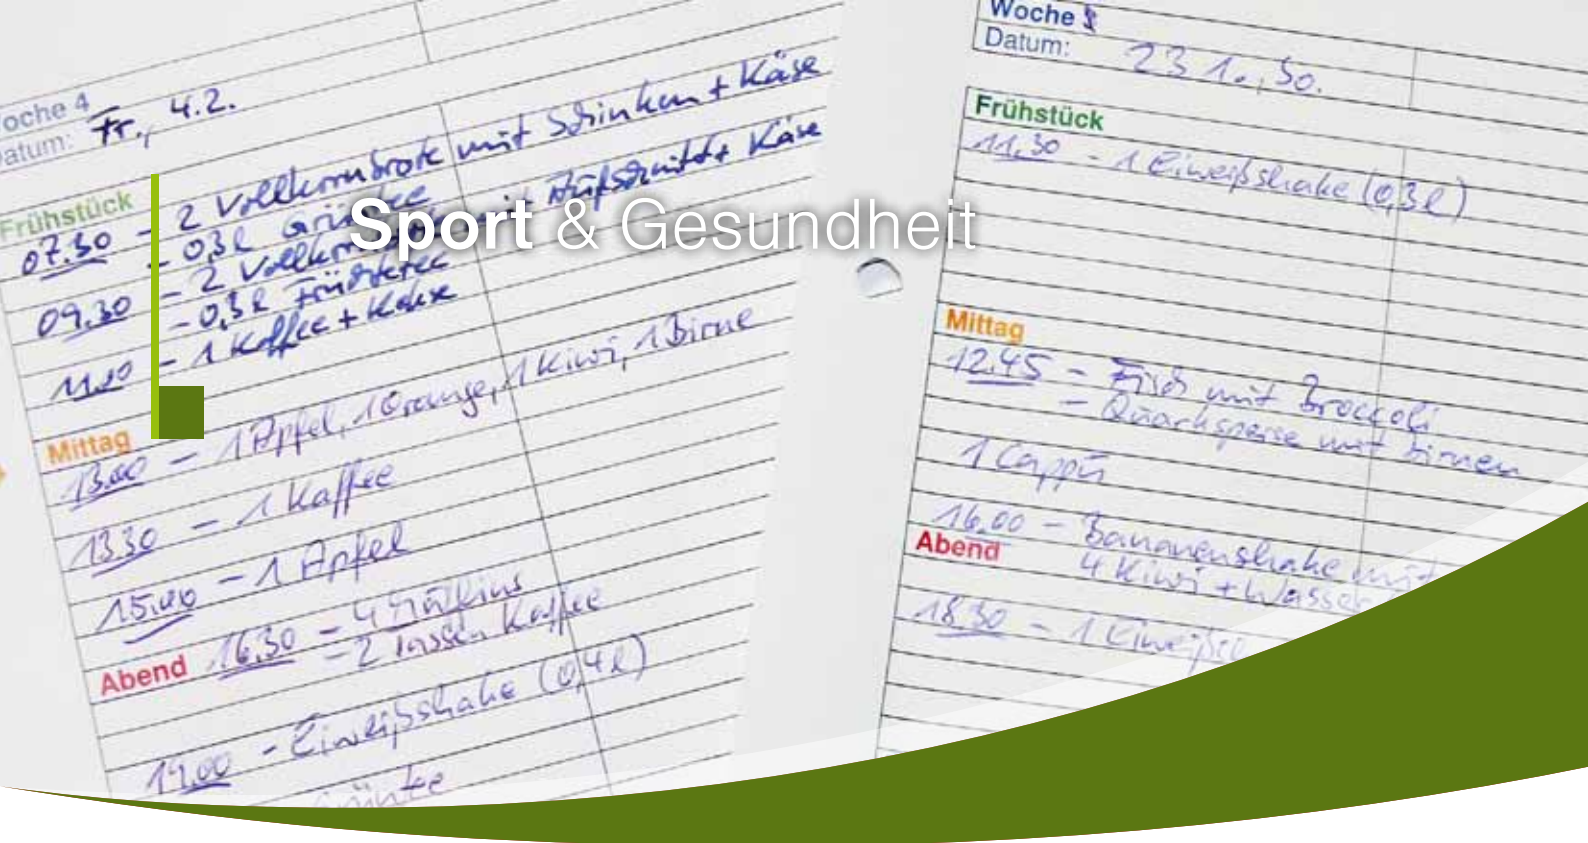 oche 4
atum: Fr., 4.2.
Frühstück
07.30 - 2 Vollkornbrote mit Schinken + Käse
- 0,3l Grüntee
09.30 - 2 mit Aufschnitt + Käse
- 0,3l Früchtetee
- 1 Kaffee + Kekse
Mittag
13.00 - 1 Apfel, 1 Orange, 1 Kiwi, 1 Birne
13.30 - 1 Kaffee
15.00 - 1 Apfel
Abend 16.30 - 4
- 2 Tassen Kaffee
19.00 - Eiweißshake (0,4l)
Sport & Gesundheit
Woche
Datum:
Frühstück
11.30 - 1 Eiweißshake (0,3l)
Mittag
12.45 - Fisch mit Broccoli
- Quarkspeise mit Birnen
1 Cappu
16.00 - Bananenshake mit
4 Kiwi + Wasser
Abend
18.30 - 1